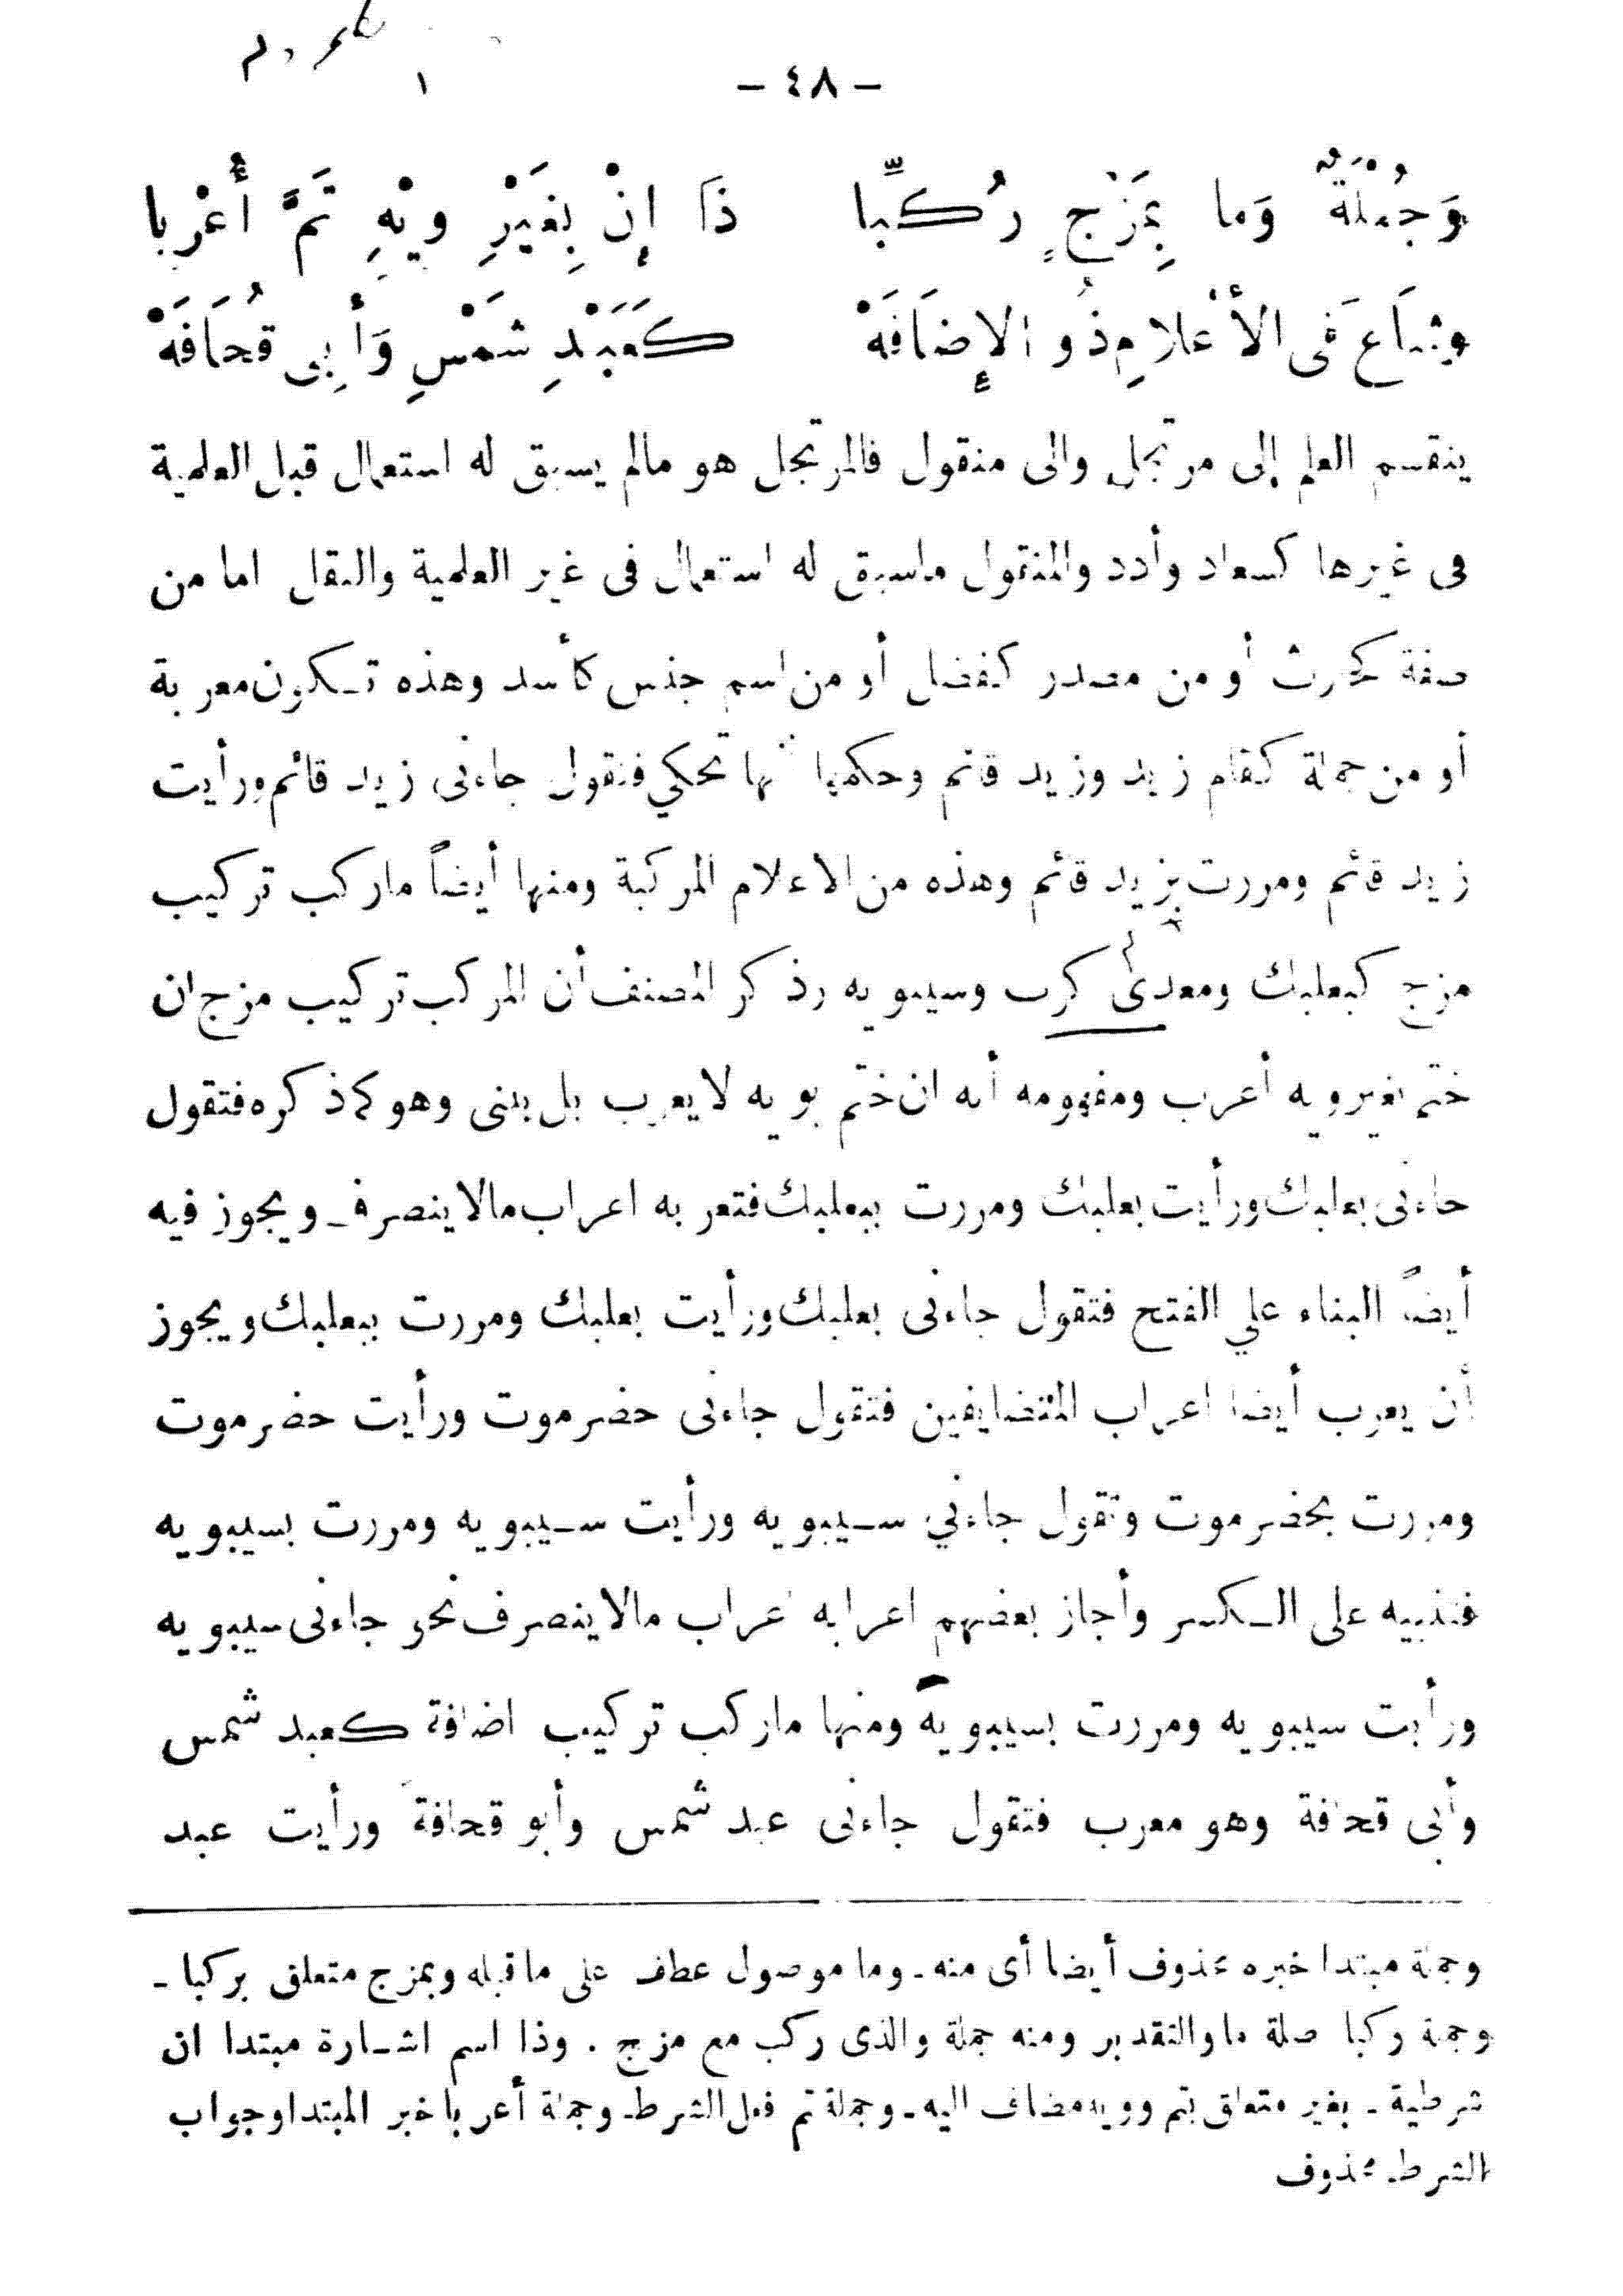 - ٤٨ -
وَجُمْلَةٌ وَما بِمَزْجٍ رُكِّبا ذَا إِنْ بِغَيْرِ وَيْهِ تَمَّ أُعْرِبا
وشَاعَ فى الأَعْلامِ ذُو الإِضَافَهْ كَعَبْدِ شَمْسٍ وَأَبِى قُحَافَهْ
ينقسم العلم إلى مرتجل والى منقول فالمرتجل هو مالم يسبق له استعمال قبل العلمية
فى غيرها كسعاد وأدد والمنقول ماسبق له استعمال فى غير العلمية والنقل اما من
صفة كحارث أو من مصدر كفضل أو من اسم جنس كأسد وهذه تـكون معربة
أو من جملة كقام زيد وزيد قائم وحكمها أنها تحكي فتقول جاءنى زيد قائم ورأيت
زيد قائم ومررت بزيد قائم وهذه من الاعلام المركبة ومنها أيضاً ماركب تركيب
مزج كبعلبك ومعدى كرب وسيبويه وذكر المصنف أن المركب تركيب مزج ان
ختم بغير ويه أعرب ومفهومه أنه ان ختم بويه لا يعرب بل يبنى وهو كما ذكره فتقول
جاءنى بعلبك ورأيت بعلبك ومررت ببعلبك فتعربه اعراب مالا ينصرف ـ ويجوز فيه
أيضاً البناء علي الفتح فتقول جاءنى بعلبك ورأيت بعلبك ومررت ببعلبك ويجوز
أن يعرب أيضا اعراب المتضايفين فتقول جاءنى حضرموت ورأيت حضرموت
ومررت بحضرموت وتقول جاءني سـيبويه ورأيت سـيبويه ومررت بسيبويه
فتبنيه على الـكسر وأجاز بعضهم اعرابه اعراب مالا ينصرف نحو جاءنى سيبويه
ورأيت سيبويه ومررت بسيبويه ومنها ماركب تركيب اضافة كعبد شمس
وأبى قحافة وهو معرب فتقول جاءنى عبد شمس وأبو قحافة ورأيت عبد
وجملة مبتدا خبره محذوف أيضا أى منه ـ وما موصول عطف على ما قبله وبمزج متعلق بركبا ـ
وجملة ركبا صلة ما والتقدير ومنه جملة والذى ركب مع مزج . وذا اسم اشـارة مبتدا ان
شرطية ـ بغير متعلق بتم وويه مضاف اليه ـ وجملة تم فعل الشرط ـ وجملة أعربا خبر المبتدا وجواب
الشرط محذوف